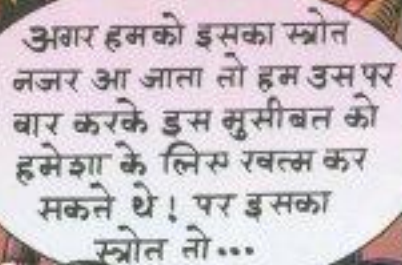 अगर हमको इसका स्त्रोत
नजर आ जाता तो हम उस पर
बार करके इस मुसीबत को
हमेशा के लिए खत्म कर
सकते थे! पर इसका
स्त्रोत तो...